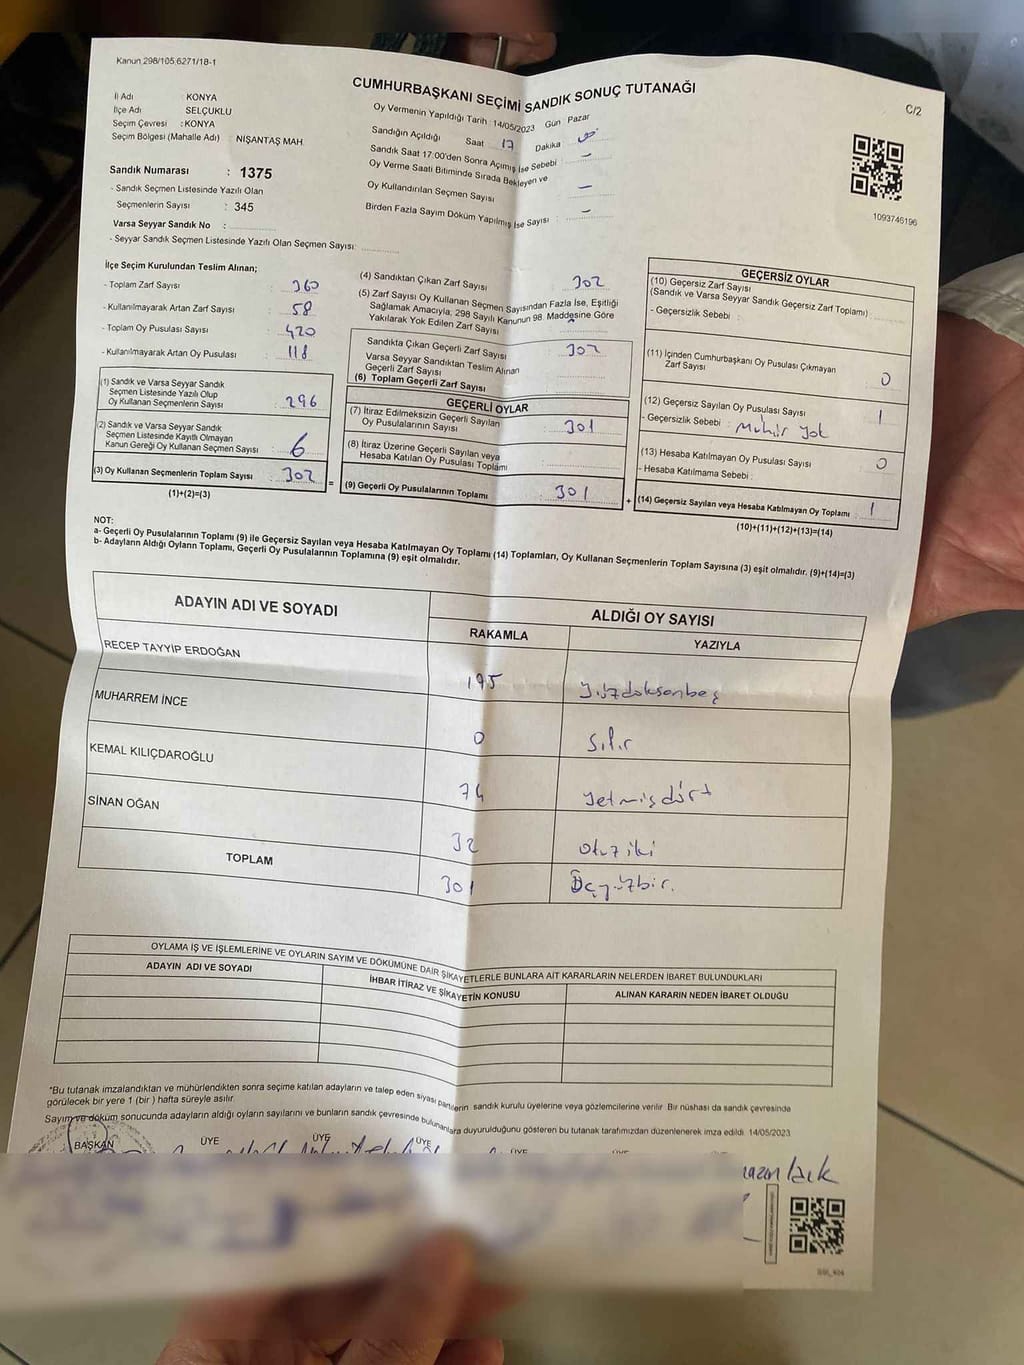 Kanun 298/105,6271/18-1
CUMHURBAŞKANI SEÇİMİ SANDIK SONUÇ TUTANAĞI
C/2
İl Adı : KONYA
İlçe Adı : SELÇUKLU
Seçim Çevresi : KONYA
Seçim Bölgesi (Mahalle Adı) : NİŞANTAŞ MAH.
Sandık Numarası : 1375
- Sandık Seçmen Listesinde Yazılı Olan
Seçmenlerin Sayısı : 345
Varsa Seyyar Sandık No :
- Seyyar Sandık Seçmen Listesinde Yazılı Olan Seçmen Sayısı:
Oy Vermenin Yapıldığı Tarih : 14/05/2023 Gün Pazar
Sandığın Açıldığı Saat 17 Dakika
Sandık Saat 17:00'den Sonra Açılmış İse Sebebi –
Oy Verme Saati Bitiminde Sırada Bekleyen ve
Oy Kullandırılan Seçmen Sayısı –
Birden Fazla Sayım Döküm Yapılmış İse Sayısı : –
1093746196
İlçe Seçim Kurulundan Teslim Alınan;
- Toplam Zarf Sayısı : 360
- Kullanılmayarak Artan Zarf Sayısı : 58
- Toplam Oy Pusulası Sayısı : 420
- Kullanılmayarak Artan Oy Pusulası : 118
(1) Sandık ve Varsa Seyyar Sandık
Seçmen Listesinde Yazılı Olup
Oy Kullanan Seçmenlerin Sayısı : 296
(2) Sandık ve Varsa Seyyar Sandık
Seçmen Listesinde Kayıtlı Olmayan
Kanun Gereği Oy Kullanan Seçmen Sayısı : 6
(3) Oy Kullanan Seçmenlerin Toplam Sayısı : 302
(1)+(2)=(3)
(4) Sandıktan Çıkan Zarf Sayısı : 302
(5) Zarf Sayısı Oy Kullanan Seçmen Sayısından Fazla İse, Eşitliği
Sağlamak Amacıyla; 298 Sayılı Kanunun 98. Maddesine Göre
Yakılarak Yok Edilen Zarf Sayısı
Sandıkta Çıkan Geçerli Zarf Sayısı : 302
Varsa Seyyar Sandıktan Teslim Alınan
Geçerli Zarf Sayısı
(6) Toplam Geçerli Zarf Sayısı
GEÇERLİ OYLAR
(7) İtiraz Edilmeksizin Geçerli Sayılan
Oy Pusulalarının Sayısı : 301
(8) İtiraz Üzerine Geçerli Sayılan veya
Hesaba Katılan Oy Pusulası Toplamı
(9) Geçerli Oy Pusulalarının Toplamı : 301
GEÇERSİZ OYLAR
(10) Geçersiz Zarf Sayısı
(Sandık ve Varsa Seyyar Sandık Geçersiz Zarf Toplamı)
- Geçersizlik Sebebi :
(11) İçinden Cumhurbaşkanı Oy Pusulası Çıkmayan
Zarf Sayısı 0
(12) Geçersiz Sayılan Oy Pusulası Sayısı 1
- Geçersizlik Sebebi : Mühür yok
(13) Hesaba Katılmayan Oy Pusulası Sayısı 0
- Hesaba Katılmama Sebebi :
(14) Geçersiz Sayılan veya Hesaba Katılmayan Oy Toplamı : 1
(10)+(11)+(12)+(13)=(14)
NOT:
a- Geçerli Oy Pusulalarının Toplamı (9) ile Geçersiz Sayılan veya Hesaba Katılmayan Oy Toplamı (14) Toplamları, Oy Kullanan Seçmenlerin Toplam Sayısına (3) eşit olmalıdır. (9)+(14)=(3)
b- Adayların Aldığı Oyların Toplamı, Geçerli Oy Pusulalarının Toplamına (9) eşit olmalıdır.
ADAYIN ADI VE SOYADI
ALDIĞI OY SAYISI
RAKAMLA YAZIYLA
RECEP TAYYİP ERDOĞAN 195 yüzdoksanbeş
MUHARREM İNCE 0 Sıfır
KEMAL KILIÇDAROĞLU 74 yetmişdört
SİNAN OĞAN 32 Otuziki
TOPLAM 301 Üçyüzbir.
OYLAMA İŞ VE İŞLEMLERİNE VE OYLARIN SAYIM VE DÖKÜMÜNE DAİR ŞİKAYETLERLE BUNLARA AİT KARARLARIN NELERDEN İBARET BULUNDUKLARI
ADAYIN ADI VE SOYADI İHBAR İTİRAZ VE ŞİKAYETİN KONUSU ALINAN KARARIN NEDEN İBARET OLDUĞU
*Bu tutanak imzalandıktan ve mühürlendikten sonra seçime katılan adayların ve talep eden siyasi partilerin sandık kurulu üyelerine veya gözlemcilerine verilir. Bir nüshası da sandık çevresinde
görülecek bir yere 1 (bir) hafta süreyle asılır.
Sayım ve döküm sonucunda adayların aldığı oyların sayılarını ve bunların sandık çevresinde bulunanlara duyurulduğunu gösteren bu tutanak tarafımızdan düzenlenerek imza edildi. 14/05/2023
BAŞKAN ÜYE ÜYE ÜYE